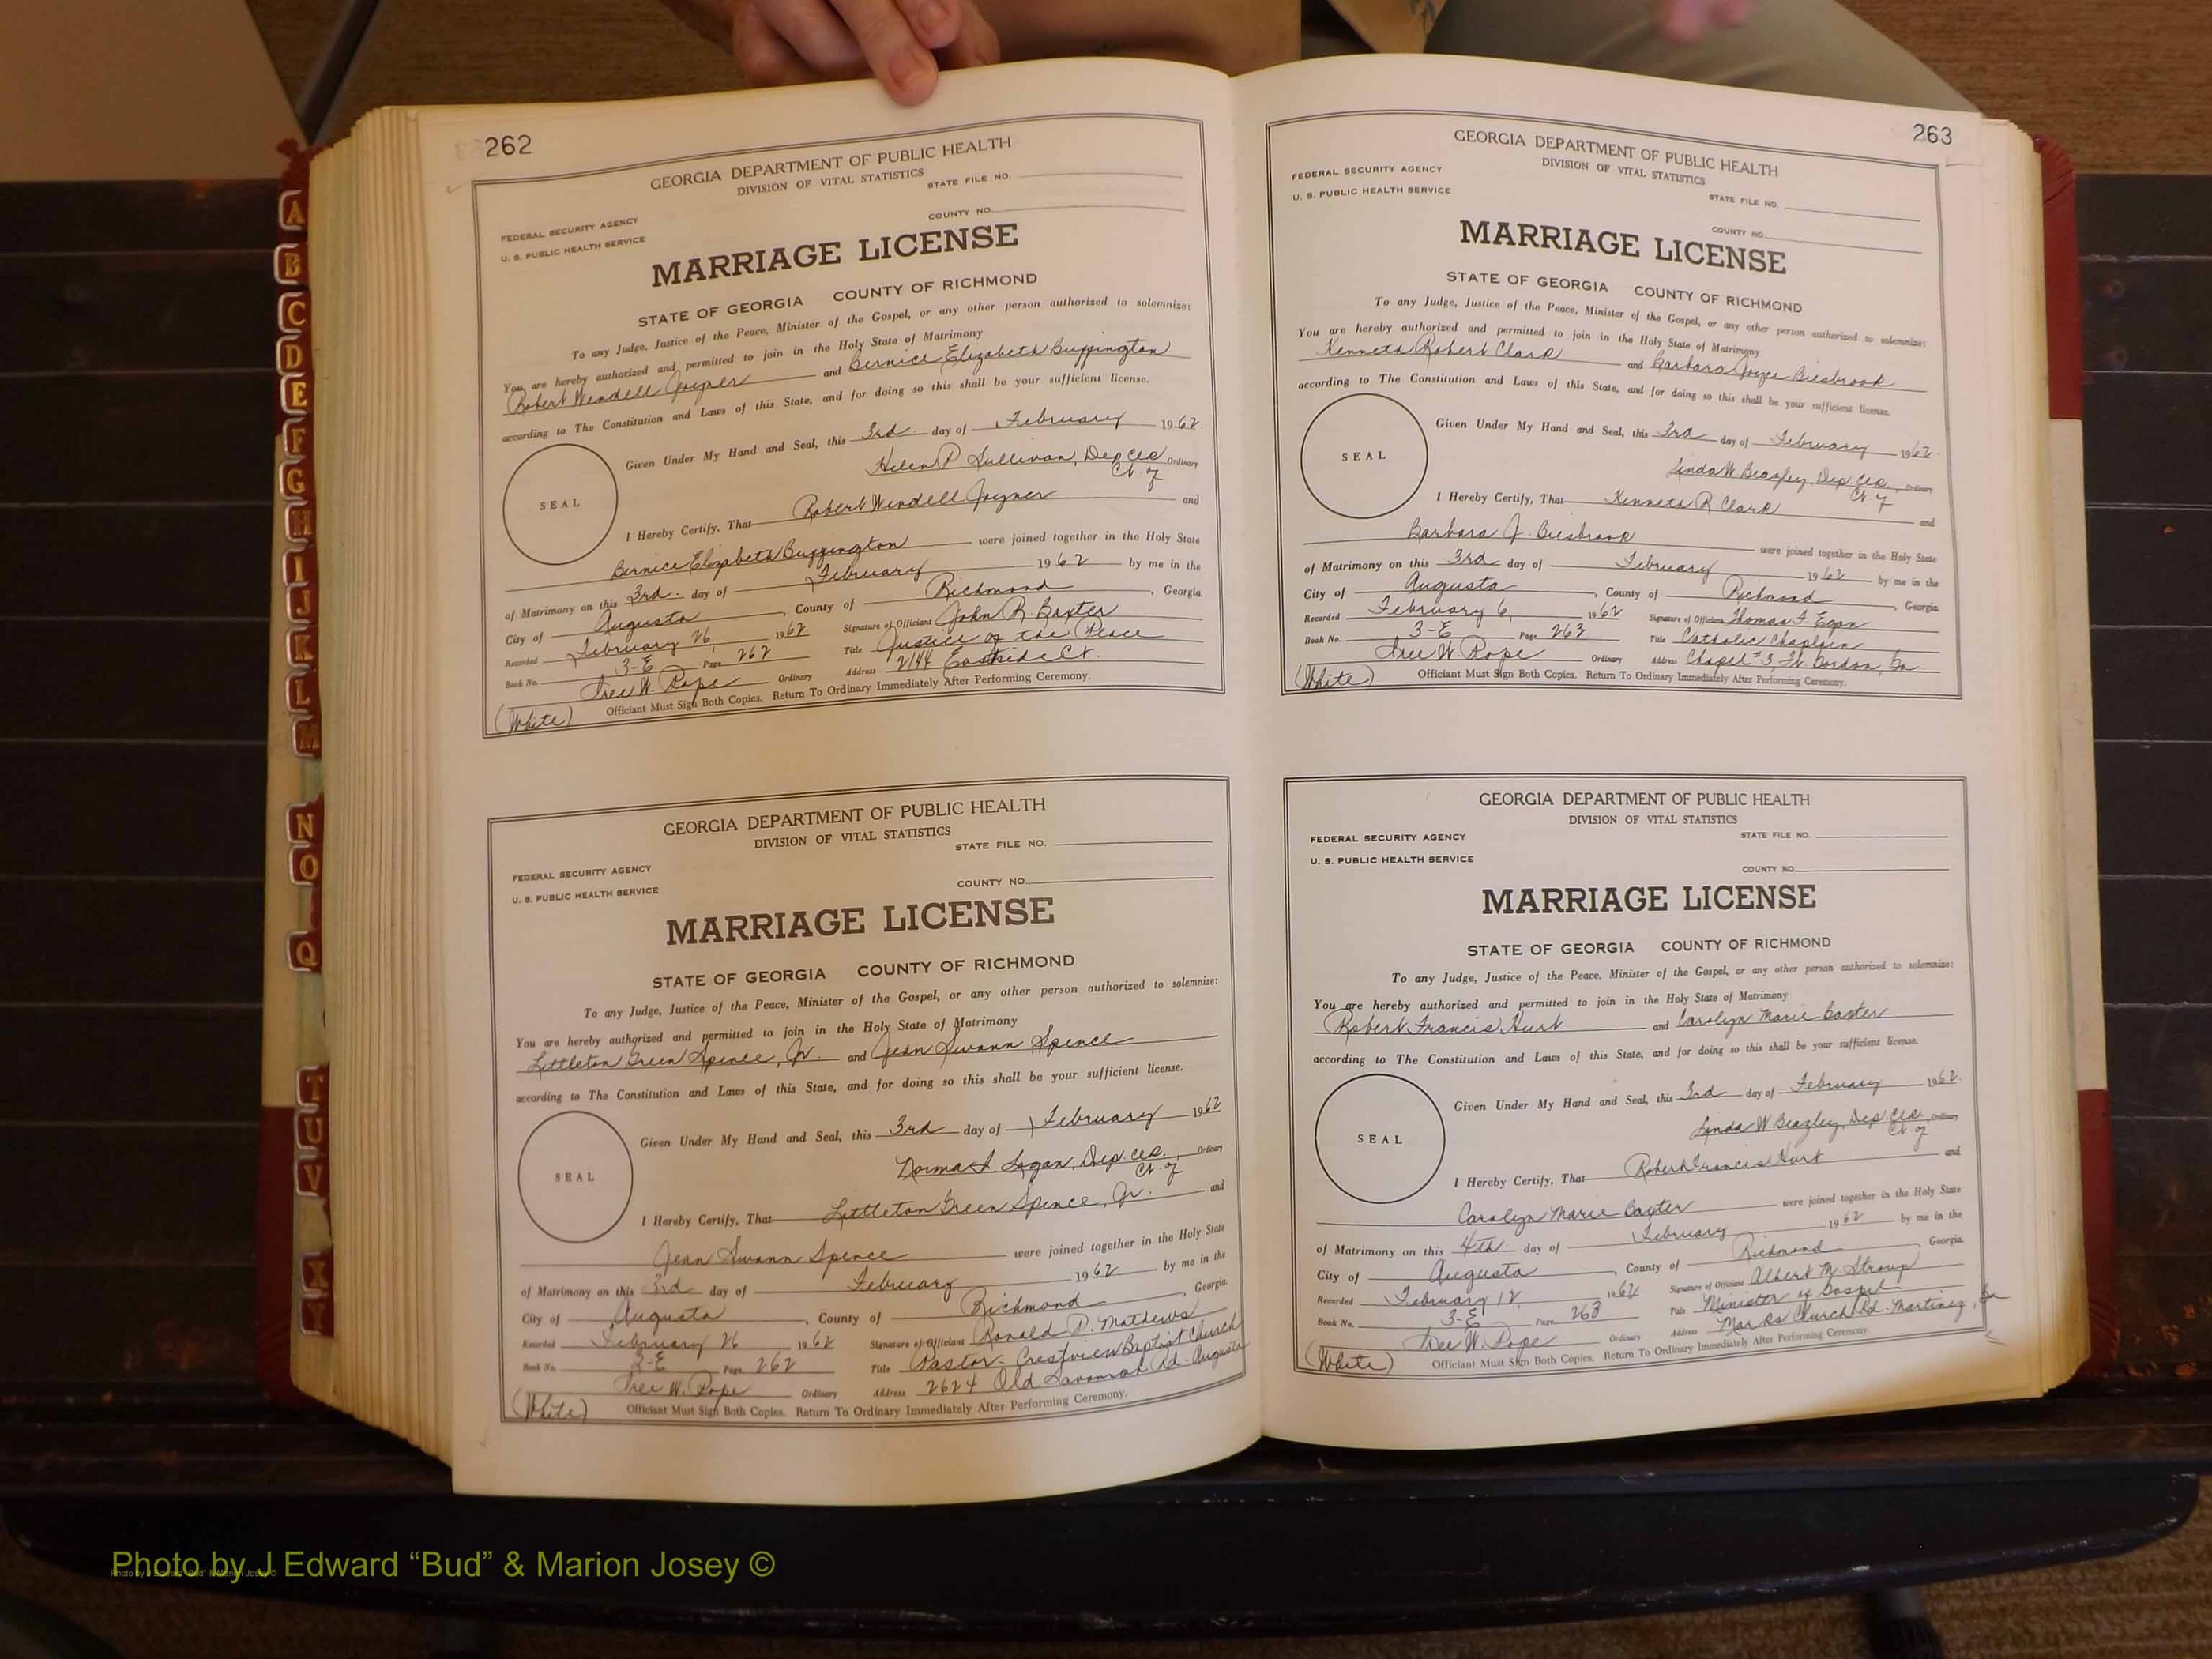 262
GEORGIA DEPARTMENT OF PUBLIC HEALTH
DIVISION OF VITAL STATISTICS
STATE FILE NO.
COUNTY NO.
FEDERAL SECURITY AGENCY
U. S. PUBLIC HEALTH SERVICE
MARRIAGE LICENSE
STATE OF GEORGIA COUNTY OF RICHMOND
To any Judge, Justice of the Peace, Minister of the Gospel, or any other person authorized to solemnize:
You are hereby authorized and permitted to join in the Holy State of Matrimony
Robert Wendell Joyner and Bernice Elizabeth Buffington
according to The Constitution and Laws of this State, and for doing so this shall be your sufficient license.
Given Under My Hand and Seal, this 3rd day of February 1962.
SEAL
Helen P. Sullivan, Dep Clk Ordinary
Ct. of
I Hereby Certify, That Robert Wendell Joyner and
Bernice Elizabeth Buffington were joined together in the Holy State
of Matrimony on this 3rd. day of February 1962 by me in the
City of Augusta, County of Richmond, Georgia.
Recorded February 26, 1962 Signature of Officiant John R. Baxter
Book No. 3-E Page 262 Title Justice of the Peace
Tree W. Pope Ordinary Address 2144 Eastside Ct.
(White) Officiant Must Sign Both Copies. Return To Ordinary Immediately After Performing Ceremony.
GEORGIA DEPARTMENT OF PUBLIC HEALTH
DIVISION OF VITAL STATISTICS
STATE FILE NO.
FEDERAL SECURITY AGENCY
COUNTY NO.
U. S. PUBLIC HEALTH SERVICE
MARRIAGE LICENSE
STATE OF GEORGIA COUNTY OF RICHMOND
To any Judge, Justice of the Peace, Minister of the Gospel, or any other person authorized to solemnize:
You are hereby authorized and permitted to join in the Holy State of Matrimony
Littleton Green Spence, Jr. and Jean Swann Spence
according to The Constitution and Laws of this State, and for doing so this shall be your sufficient license.
Given Under My Hand and Seal, this 3rd day of February 1962
SEAL
Norma L. Logan, Dep. Clk., Ordinary
Ct. of
I Hereby Certify, That Littleton Green Spence, Jr. and
Jean Swann Spence were joined together in the Holy State
of Matrimony on this 3rd day of February 1962 by me in the
City of Augusta, County of Richmond, Georgia.
Recorded February 26 1962 Signature of Officiant Ronald D. Mathews
Book No. 3-E Page 262 Title Pastor - Crestview Baptist Church
Tree W. Pope Ordinary Address 2624 Old Savannah Rd. - Augusta
(White) Officiant Must Sign Both Copies. Return To Ordinary Immediately After Performing Ceremony.
263
GEORGIA DEPARTMENT OF PUBLIC HEALTH
DIVISION OF VITAL STATISTICS
FEDERAL SECURITY AGENCY
U. S. PUBLIC HEALTH SERVICE
STATE FILE NO.
COUNTY NO.
MARRIAGE LICENSE
STATE OF GEORGIA COUNTY OF RICHMOND
To any Judge, Justice of the Peace, Minister of the Gospel, or any other person authorized to solemnize:
You are hereby authorized and permitted to join in the Holy State of Matrimony
Kenneth Robert Clark and Barbara Joyce Biesbrock
according to The Constitution and Laws of this State, and for doing so this shall be your sufficient license.
Given Under My Hand and Seal, this 3rd day of February 1962.
SEAL
Linda W Beazley, Dep Clk., Ordinary
Ct. of
I Hereby Certify, That Kenneth R Clark and
Barbara J. Biesbrock were joined together in the Holy State
of Matrimony on this 3rd day of February 1962 by me in the
City of Augusta, County of Richmond, Georgia
Recorded February 6, 1962 Signature of Officiant Thomas F. Egan
Book No. 3-E Page 263 Title Catholic Chaplain
Tree W. Pope Ordinary Address Chapel #3, Ft. Gordon, Ga
(White) Officiant Must Sign Both Copies. Return To Ordinary Immediately After Performing Ceremony.
GEORGIA DEPARTMENT OF PUBLIC HEALTH
DIVISION OF VITAL STATISTICS
FEDERAL SECURITY AGENCY STATE FILE NO.
U. S. PUBLIC HEALTH SERVICE
COUNTY NO.
MARRIAGE LICENSE
STATE OF GEORGIA COUNTY OF RICHMOND
To any Judge, Justice of the Peace, Minister of the Gospel, or any other person authorized to solemnize:
You are hereby authorized and permitted to join in the Holy State of Matrimony
Robert Francis Hurt and Carolyn Marie Baxter
according to The Constitution and Laws of this State, and for doing so this shall be your sufficient license.
Given Under My Hand and Seal, this 3rd day of February 1962.
SEAL
Linda W Beazley, Dep. Clk. Ordinary
Ct. of
I Hereby Certify, That Robert Francis Hurt and
Carolyn Marie Baxter were joined together in the Holy State
of Matrimony on this 4th day of February 1962 by me in the
City of Augusta, County of Richmond, Georgia.
Recorded February 12, 1962 Signature of Officiant Albert M. Stroup
Book No. 3-E Page 263 Title Minister of Gospel
Tree W. Pope Ordinary Address Marks Church Rd. Martinez, Ga
(White) Officiant Must Sign Both Copies. Return To Ordinary Immediately After Performing Ceremony.
A
B
C
D
E
F
G
H
I
J
K
L
M
N
O
Q
T
U
V
X
Y
Photo by J Edward “Bud” & Marion Josey ©
Photo by J Edward "Bud" & Marion Josey ©